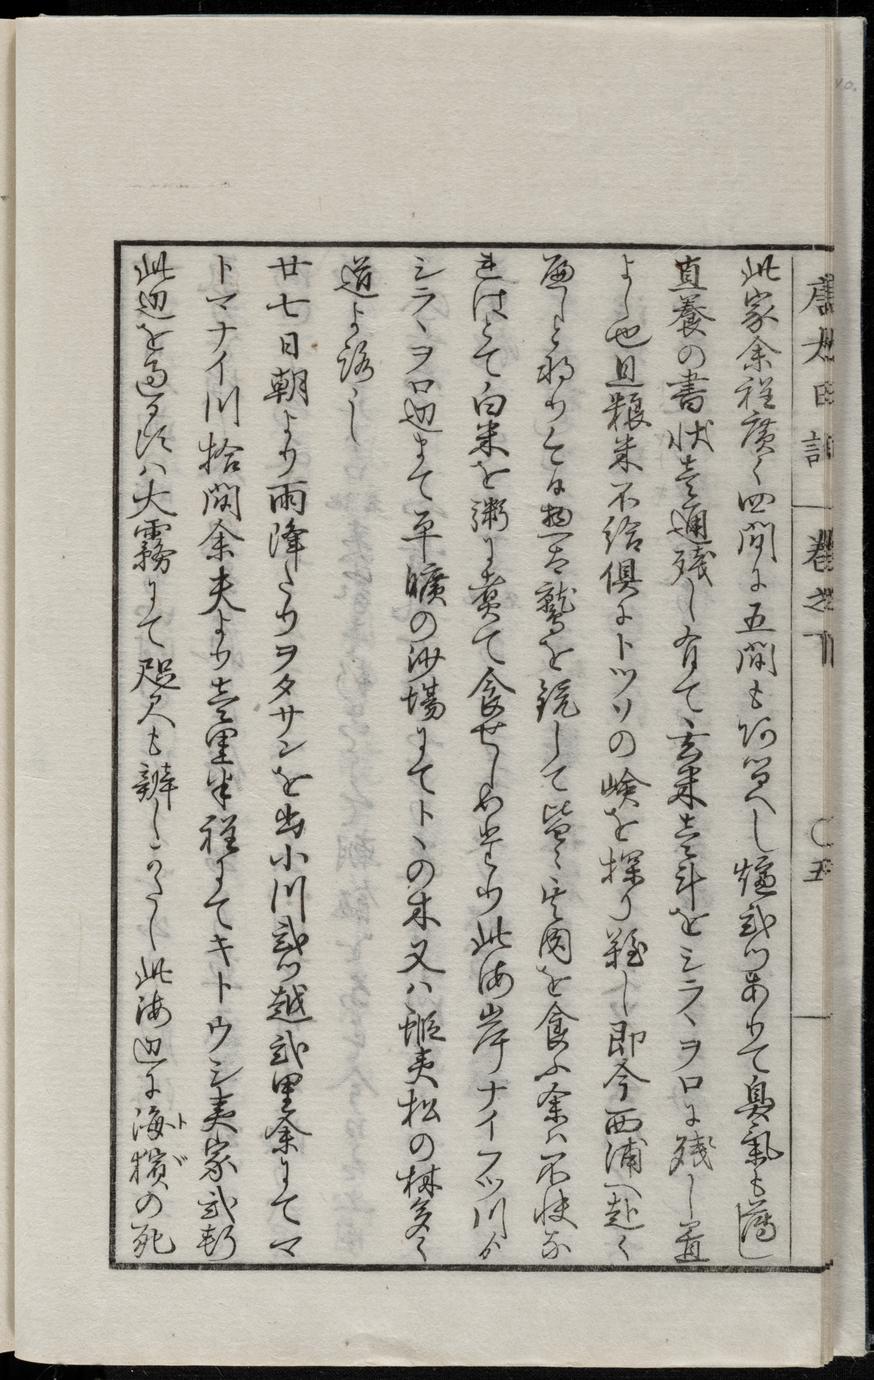 唐太日記 巻之下 〇五
此家余程廣く四間に五間も可有へし爐弐ツありて臭氣も薄し
直養の書状壱通残し有て玄米壱斗をシラヽヲロに残し置
よし也且粮米不給倶にトツソの嶮を探り難し即今西浦へ赴く
と物の鷲を銃して皆々其肉を食ふ余は不快な
れはとて白米を粥に煮て食せしめたり此海岸ナイフツ川より
シラヽヲロ辺まて平曠の沙場にてトヽの木又ハ蝦夷松の林多く
道よろし
廿七日朝より雨降たりヲタサンを出小川弐ツ越弐里余にてマ
トマナイ川拾間余夫より壱里半程にてキトウシ夷家弐軒
此辺を過る頃ハ大霧にて咫尺も辨しかたし此海辺に海獱の死